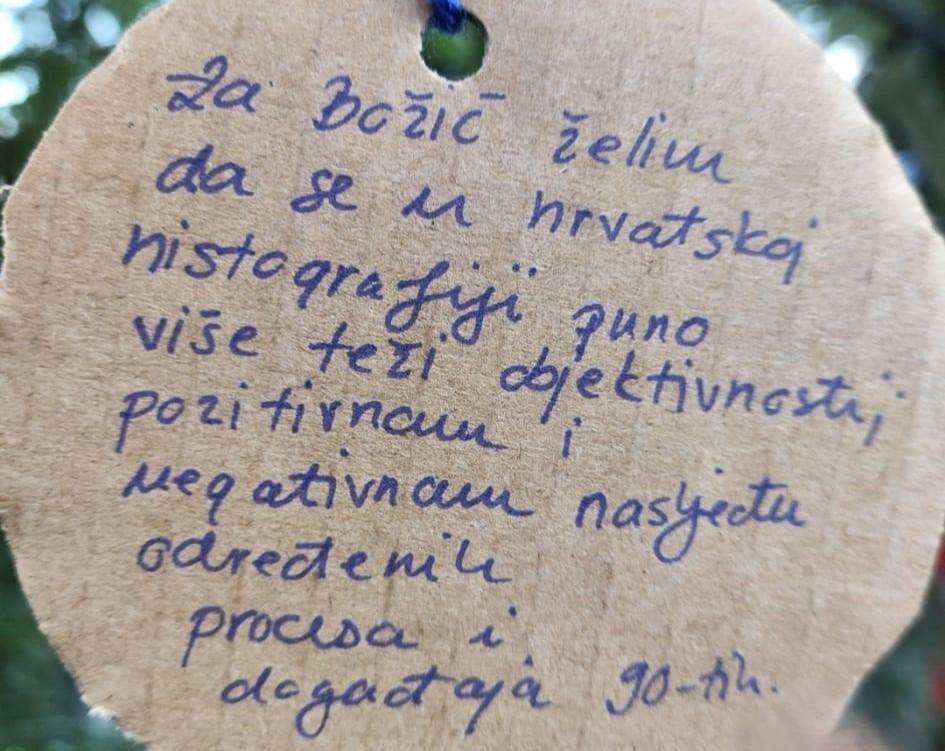 Za Božić želim
da se u hrvatskoj
histografiji puno
više teži objektivnosti,
pozitivnom i
negativnom nasljeđu
određenih
procesa i
događaja 90-tih.